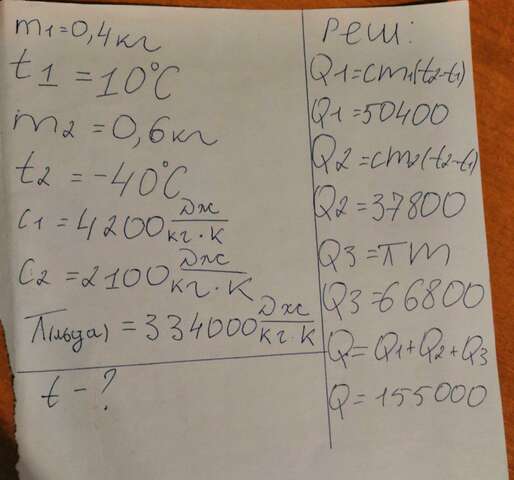 m1=0,4кг
t1=10°C
m2=0,6кг
t2=-40°C
c1=4200 Дж/кг·К
c2=2100 Дж/кг·К
π(льда)=334000 Дж/кг·К
t-?
Реш:
Q1=cm1(t2-t1)
Q1=50400
Q2=cm2(t2-t1)
Q2=37800
Q3=πm
Q3=66800
Q=Q1+Q2+Q3
Q=155000